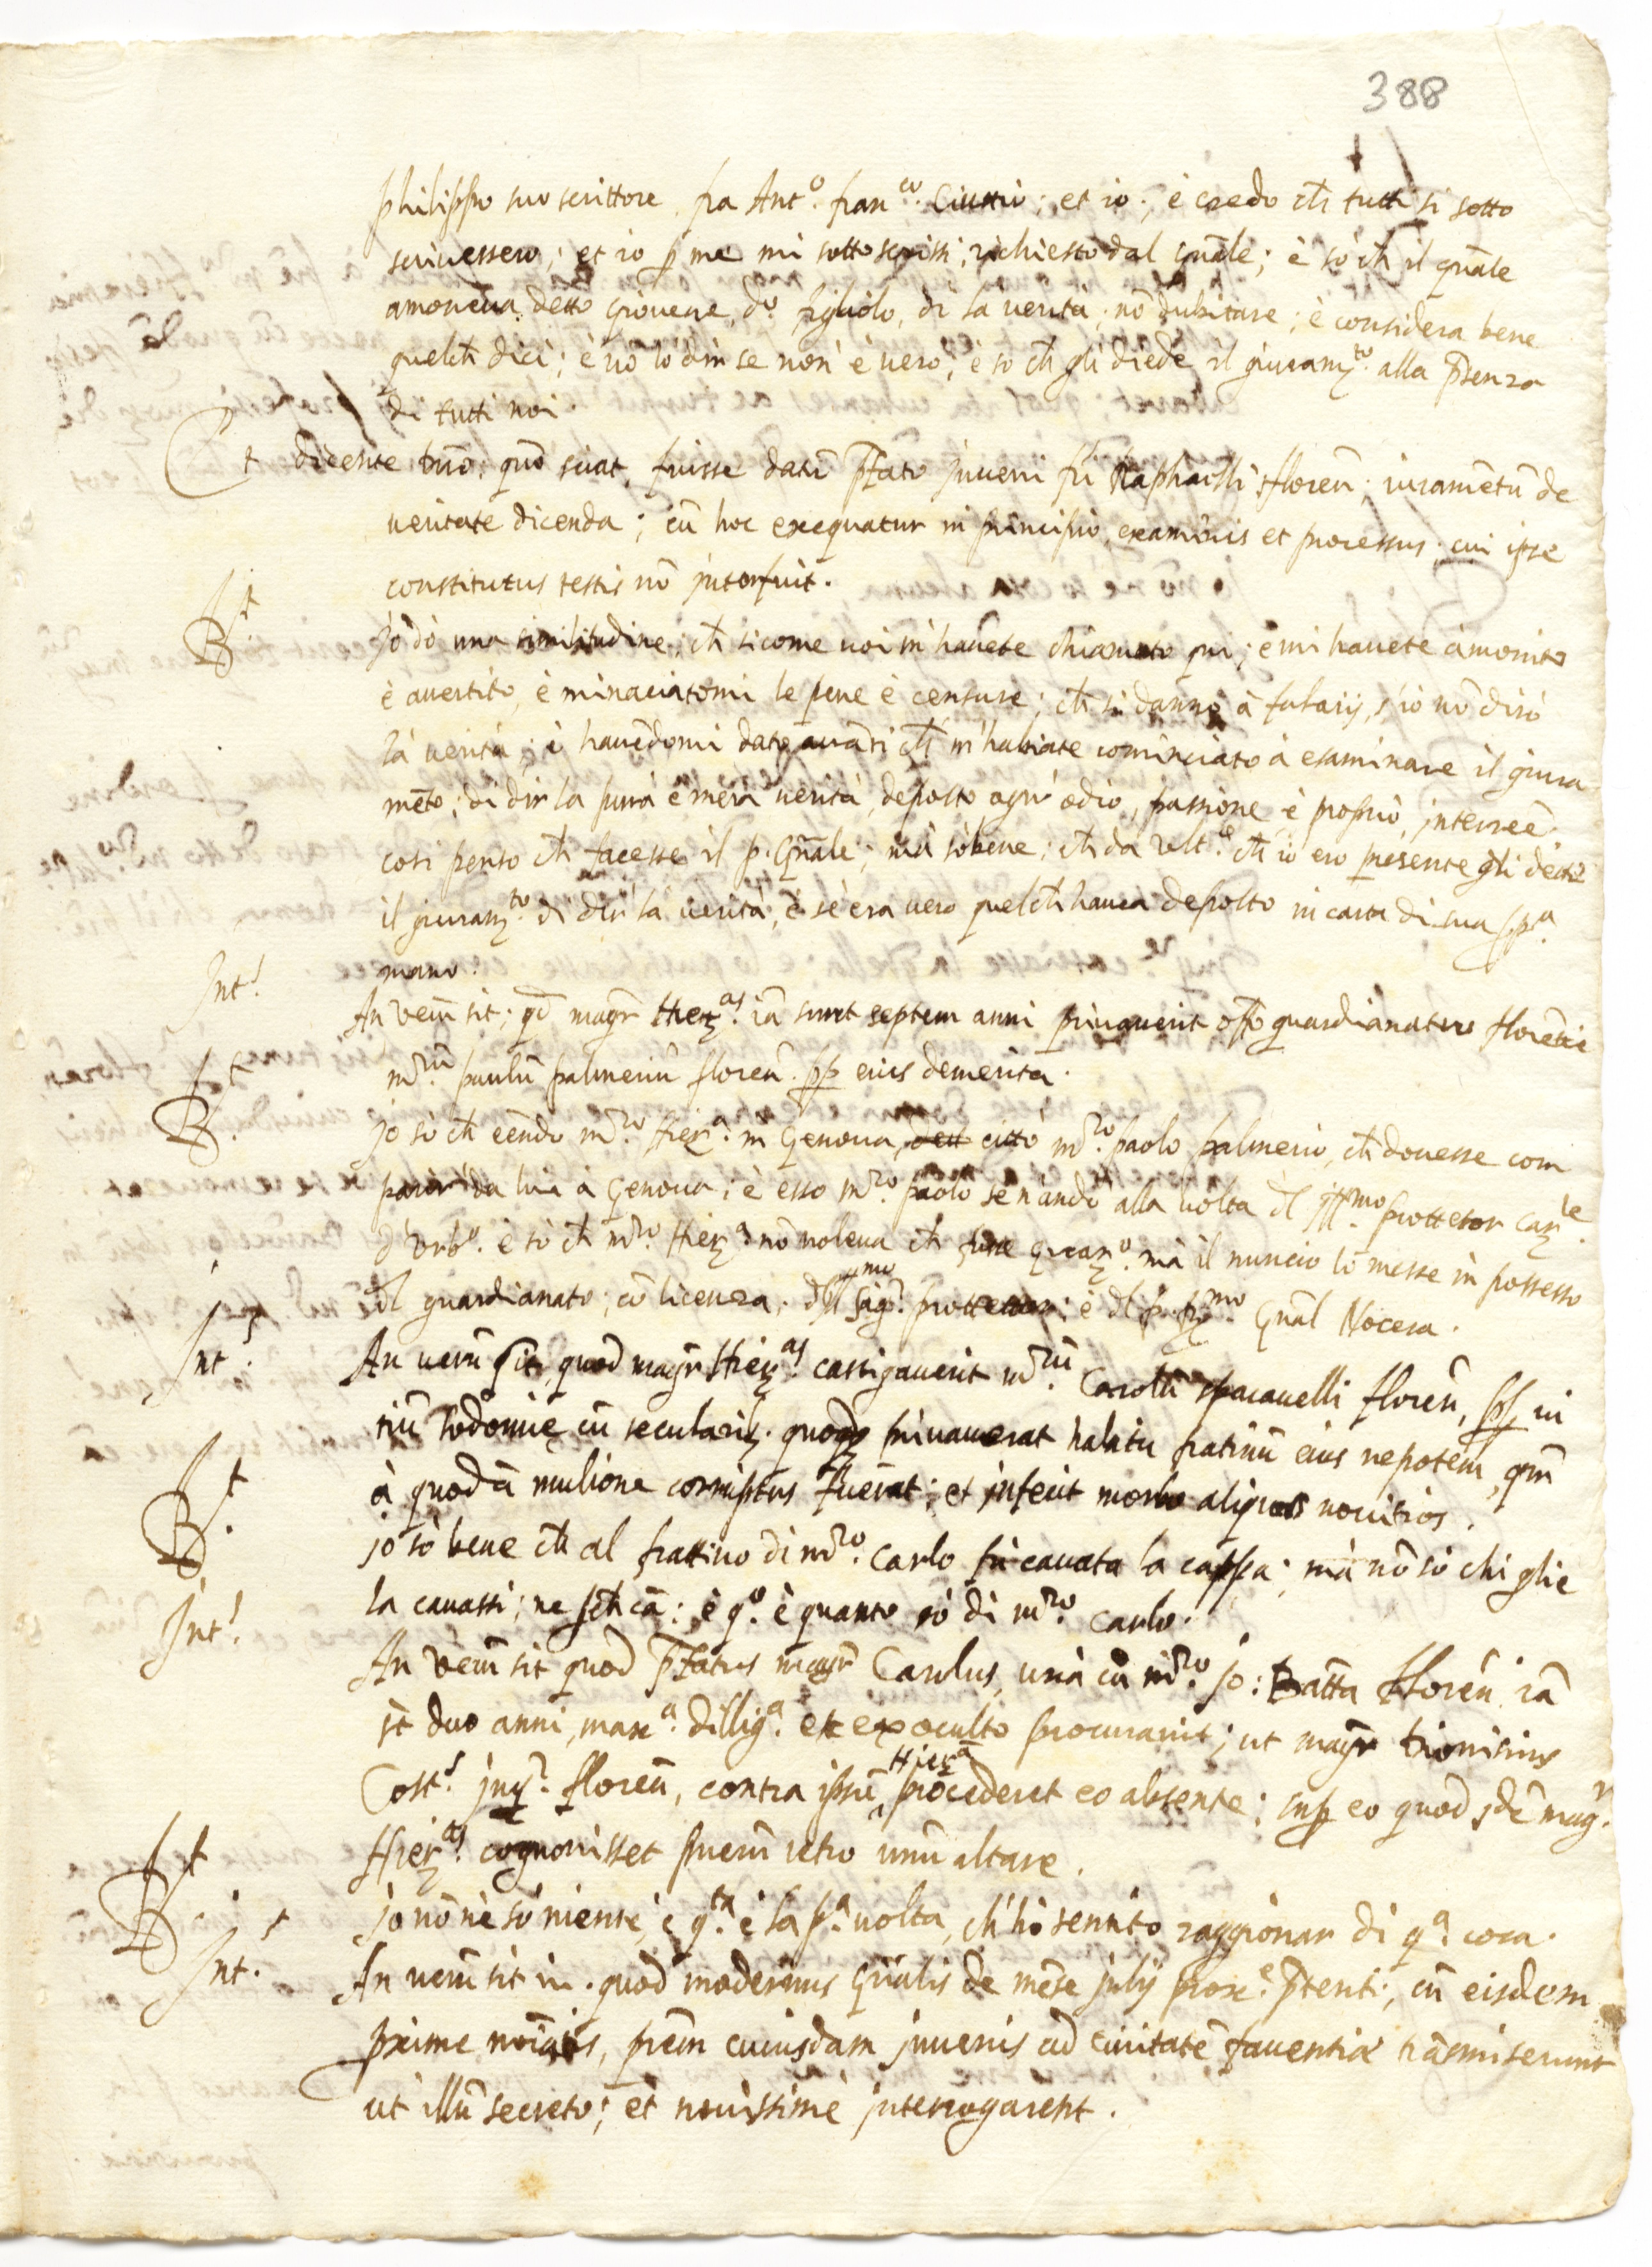 388
philippo suo scrittore, fra Ant.º fran.co Ciuttio; et io; è credo ch̃ tutti si sotto
scriuessero; et io p me mi sottoscrissi; richiesto dal gñale; è sò ch̃ il gñale
amoneua detto giouene, d.º figliolo, di la uerità, nõ dubitare; è considera bene
quelch̃ dici; è nõ lo dir se non è uero; è so ch̃ gli diede il giuram.to alla p̃senza
di tutti noi.
Et dicente dño: quõ sciat, fuisse datũ p̃fato juueni fri Raphaelli floreñ; iuramẽtũ de
ueritate dicenda; cũ hoc exequatur in principio, examinis et processus; cui ipse
constitutus testis nõ interfuit.
R.t Jo dò una similitudine; ch̃ sicome uoi m'hauete chiamato qui; è mi hauete àmonito
è auertito, è minaciatomi le pene è censure; ch̃ si danno à falsarij, s'io nõ dirò
la uerità; è hauẽdomi dato auãti ch̃ m'habiate cominciato à esaminare il giura
mẽto; di dir la pura è mera uerità, deposto ogni odio, passione è proprio, interesse
cosi penso ch̃ facesse il p. gñale; mà sò bene; ch̃ da uolt.e ch̃ io ero presente gli dette
il giuram.to di dir la uerità; è se era uero quelch̃ hauea deposto in carta di sua pp.a
mano.
Int.s An verũ sit; qd magr̃ Hier.as iã sunt septem anni priuauerit offo guardianatus florẽtie
m.rũ paulũ palmeriũ floreñ. pp eius demerita.
R.t Jo sò ch̃ eẽndo m.ro Hier.a in Genoua, citò m.ro paolo palmerio, ch̃ douesse com
parir da lui à Genoua; è esso m.ro paolo se n'andò alla uolta dl Ill.mo prottetor car.le
d'Urb.º è sò ch̃ m.ro Hier.a nõ uoleua ch̃ fusse guar.º mà il nuncio lo messe in possesso
dl guardianato; cõ licenza, dll'Ill.mo sig.r prottettor; è dl p. R.mo gñal Nocera.
Int.s An uerũ sit, quod magr̃ Hier.as castigauerit m.rũ Carolũ floreñ, pp ui
tiũ sodomie cũ secularib. quodq priuauerat habitu fratinũ eius nepotem, qm̃
à quodã mulione corruptus fuerat; et infecit morbo aliquos nouitios.
R.t jo sò bene ch̃ al frattino di m.ro Carlo fu cauata la cappa; mà nõ so chi glie
la cauassi; ne p ch̃ cã: è q.º è quanto sò di m.ro Carlo.
Int.s An verũ sit quod p̃fatus magr̃ Carolus, unà cũ m.ro Jo: Batta floreñ iã
st duo anni, max.a dillig.a et ex oculto procurauit; ut magr̃ Dionisius
Cost.s Inq.r floreñ, contra ipsũ Hier.ã procederet eo absente; sup eo quod idẽ mag.r
Hier.as cognouisset puerũ retro unũ altare.
R.t Jo nõ nè sò niente, è q.ta è la p.a uolta, ch'hò sentito raggionar di q.a cosa.
Int.s An uerũ sit in. quod modernus gñalis de mẽse julij prox.e p̃teriti; cũ eisdem
prime noĩatis, frẽm cuiusdam juuenis ad ciuitatẽ fauentiæ trãsmiserunt
ut illũ secreto; et nouissime interrogarent.